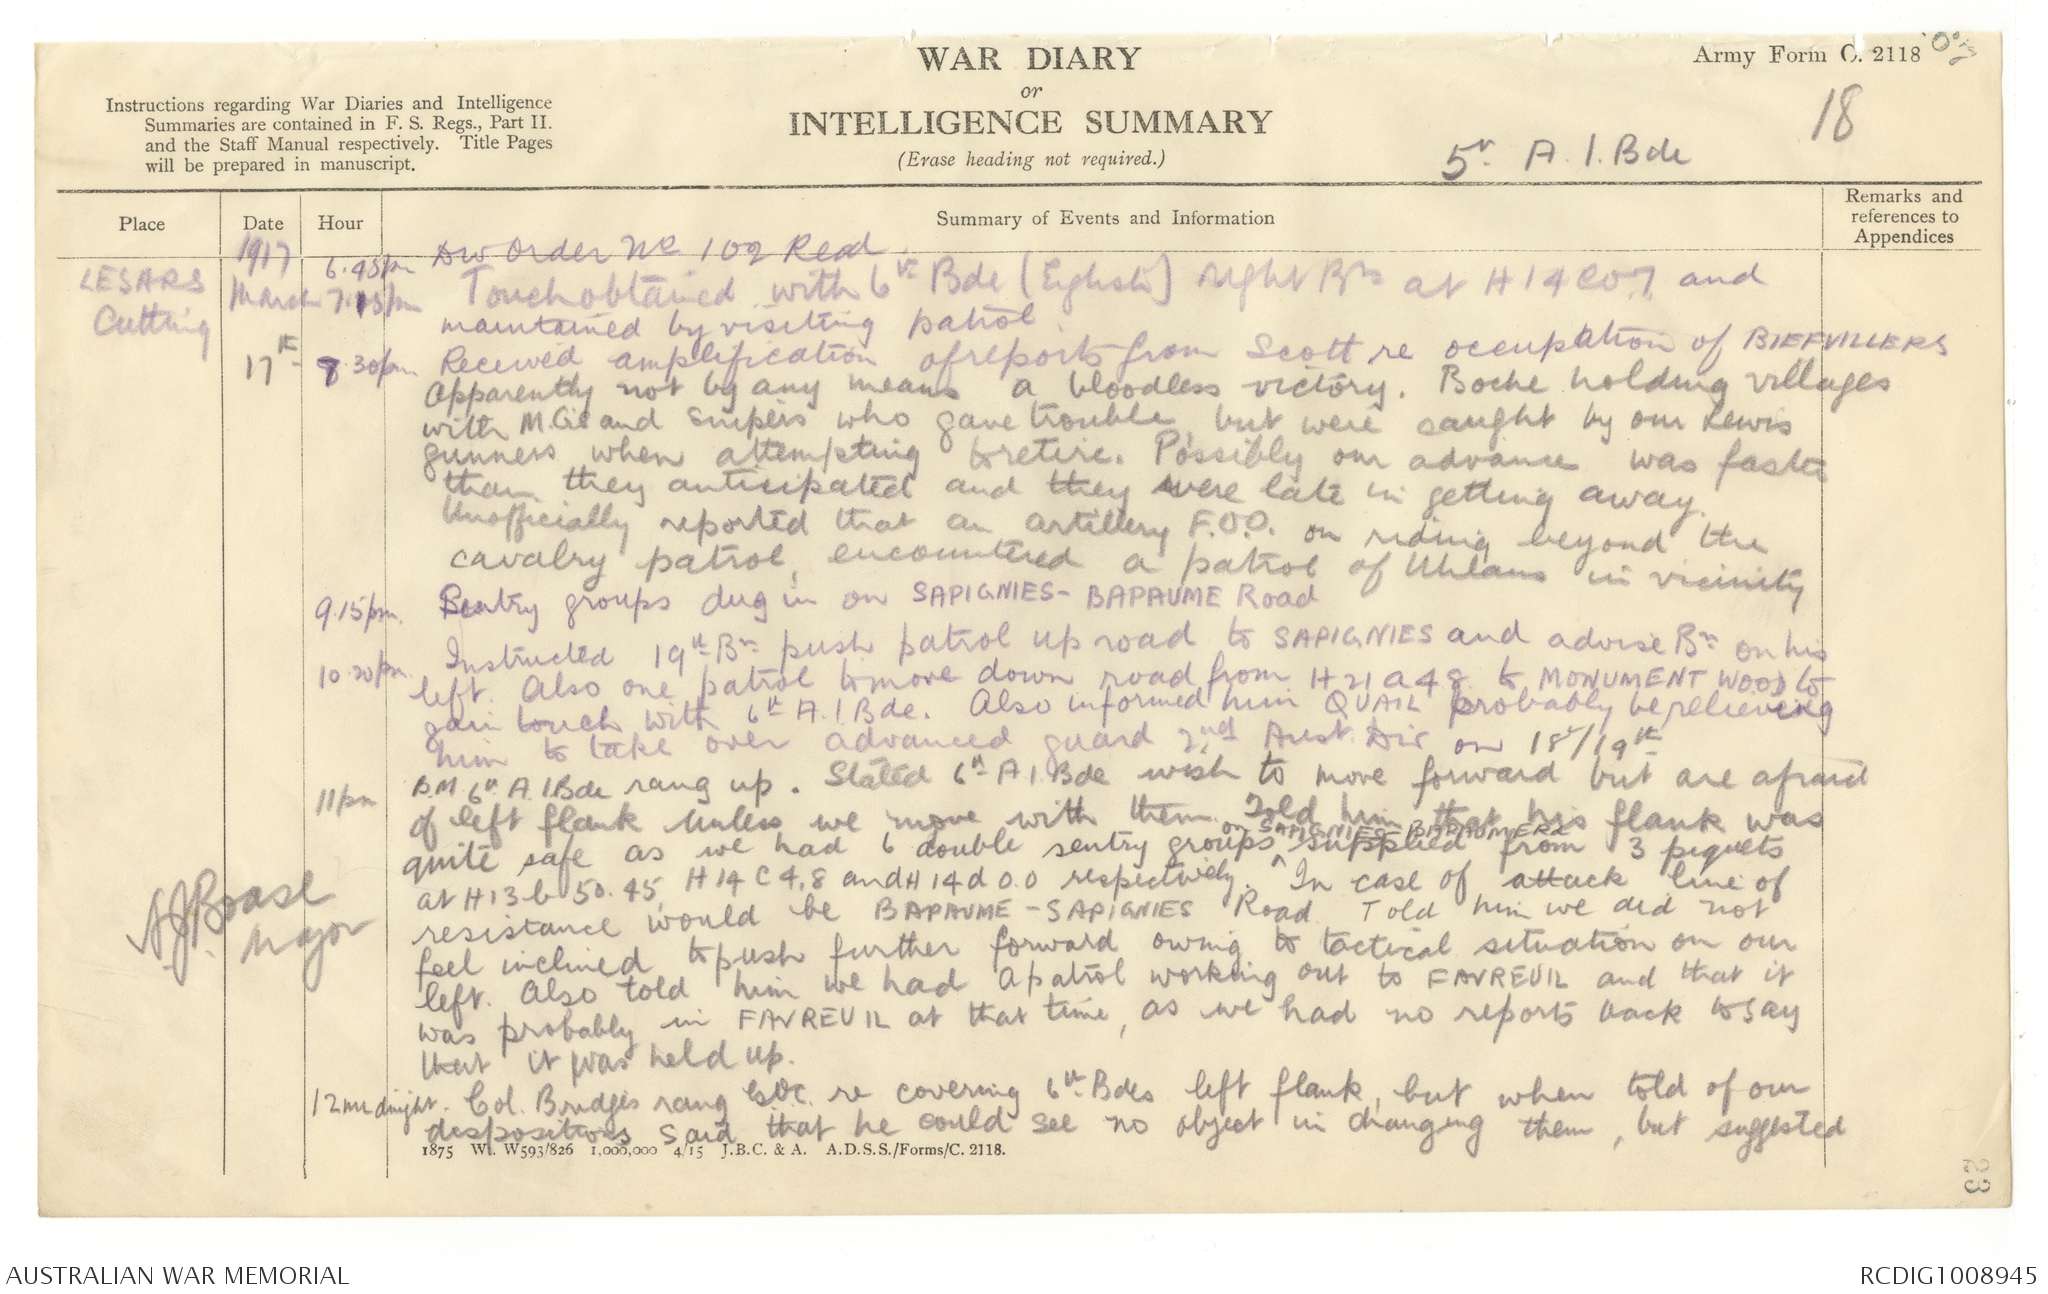 WAR DIARY
or
INTELLIGENCE SUMMARY
(Erase heading not required.)
Army Form C. 2118
Orig
18
5th A.I.Bde
Instructions regarding War Diaries and Intelligence
Summaries are contained in F. S. Regs., Part II.
and the Staff Manual respectively. Title Pages
will be prepared in manuscript.
Place
Date
Hour
Summary of Events and Information
Remarks and
references to
Appendices
LESARS
Cutting
1917
March
17th
6.45pm Div Order No 102 Recd
7.15pm Touch obtained with 6th Bde (English) right Bn at H14C07 and
maintained by visiting patrol
8.30pm Received amplification of reports from Scott re occupation of BIEFVILLERS
Apparently not by any means a bloodless victory. Boche holding villages
with M.Gs and snipers who gave trouble, but were caught by our Lewis
gunners when attempting to retire. Possibly our advance was faster
than they anticipated and they were late in getting away.
Unofficially reported that an artillery F.O.O. on riding beyond the
cavalry patrol, encountered a patrol of Uhlans in vicinity
9.15pm. Sentry groups dug in on SAPIGNIES-BAPAUME Road
10.20pm. Instructed 19th Bn push patrol up road to SAPIGNIES and advise Bn on his
left. Also one patrol to move down road from H21A48 to MONUMENT WOOD to
gain touch with 6th A.I.Bde. Also informed him QUAIL probably be relieving
him to take over advanced guard 2nd Aust. Div on 18th/19th
11pm B.M. 6th A.I.Bde rang up. Stated 6th A.I.Bde wish to move forward but are afraid
of left flank unless we move with them. Told him that his flank was
on SAPIGNIES BAPAUME Rd
quite safe as we had 6 double sentry groups ^ supplied from 3 piquets
at H13b50.45, H14C4,8 and H14d0.0 respectively. In case of attack line of
resistance would be BAPAUME-SAPIGNIES Road. Told him we did not
feel inclined to push further forward owing to tactical situation on our
left. Also told him we had a patrol working out to FAVREUIL and that it
was probably in FAVREUIL at that time, as we had no reports back to say
that it was held up.
12 midnight. Col. Bridges rang GOC. re covering 6th Bdes left flank, but when told of our
dispositions said that he could see no object in changing them, but suggested
A.J. Boase
Major
1875 Wt. W593/826 1,000,000 4/15 J.B.C. & A. A.D.S.S./Forms/C. 2118.
23
AUSTRALIAN WAR MEMORIAL
RCDIG1008945